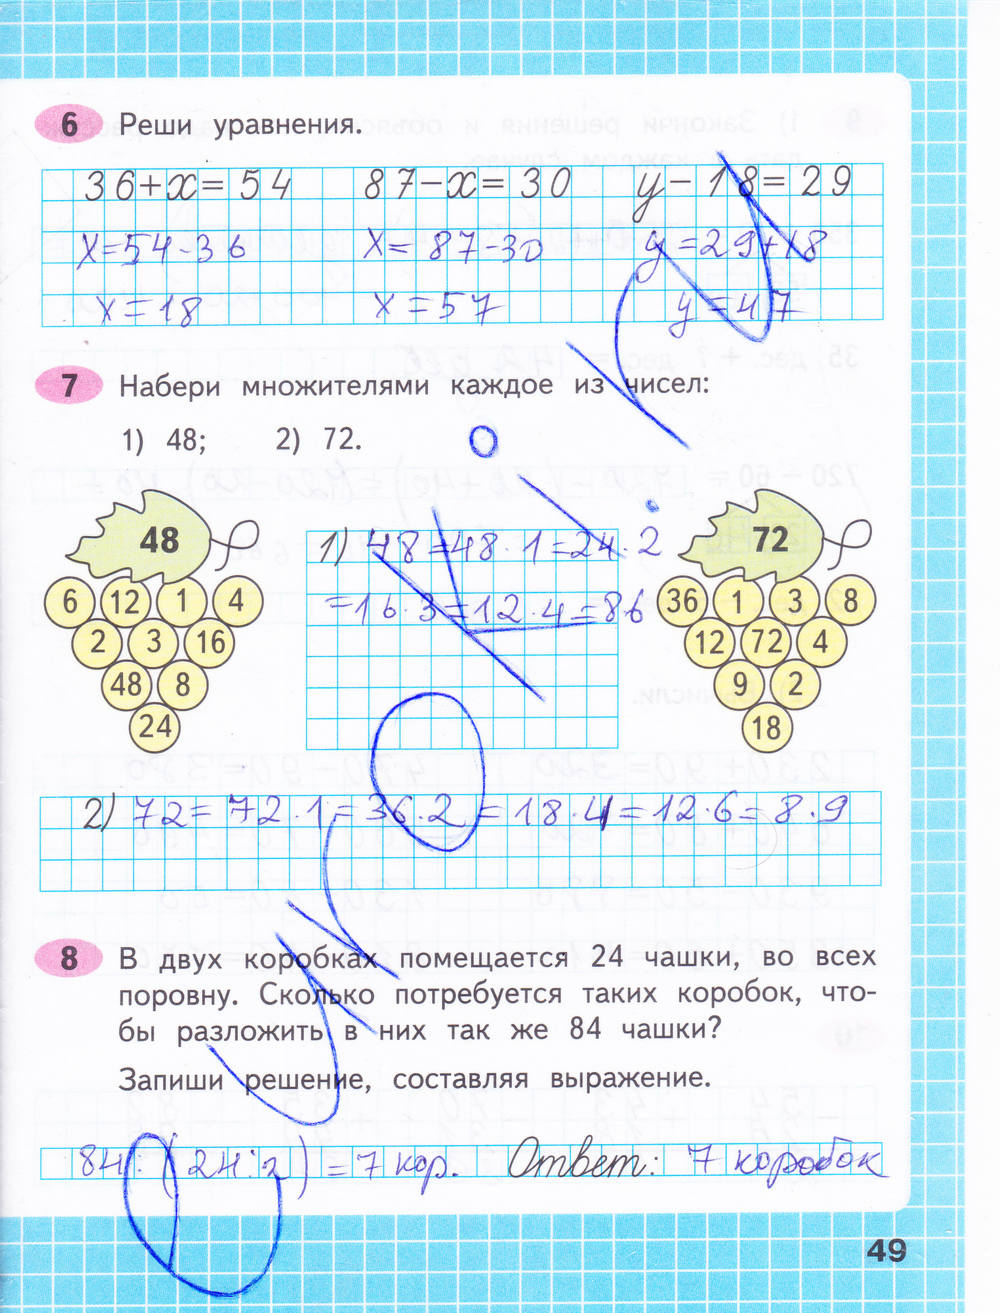 6 Реши уравнения.
36+x=54 87-x=30 y-18=29
x=54-36 x=87-30 y=29+18
x=18 x=57 y=47
7 Набери множителями каждое из чисел:
1) 48; 2) 72.
48
6 12 1 4
2 3 16
48 8
24
1) 48=48·1=24·2
=16·3=12·4=86
72
36 1 3 8
12 72 4
9 2
18
2) 72=72·1=36·2=18·4=12·6=8·9
8 В двух коробках помещается 24 чашки, во всех
поровну. Сколько потребуется таких коробок, что-
бы разложить в них так же 84 чашки?
Запиши решение, составляя выражение.
84:(24:2)=7 кор. Ответ: 7 коробок
49